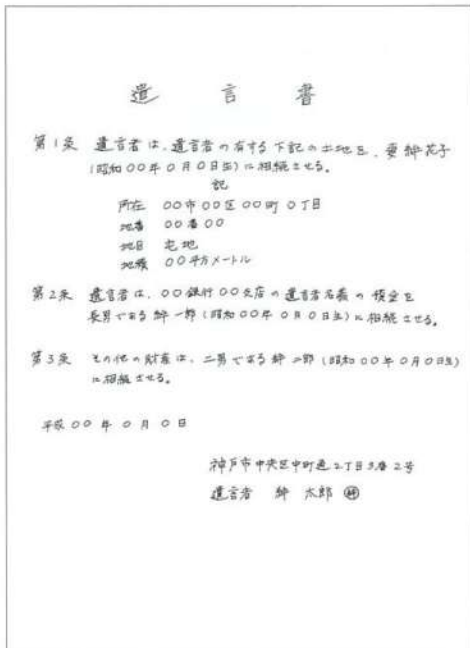 遺言書
第1条 遺言者は、遺言者の有する下記の土地を、妻 絆花子
(昭和00年0月0日生)に相続させる。
記
所在 00市00区00町0丁目
地番 00番00
地目 宅地
地積 00平方メートル
第2条 遺言者は、00銀行00支店の遺言者名義の預金を
長男である絆一郎(昭和00年0月0日生)に相続させる。
第3条 その他の財産は、二男である絆二郎(昭和00年0月0日生)
に相続させる。
平成00年0月0日
神戸市中央区中町通2丁目3番2号
遺言者 絆 太郎 ㊞